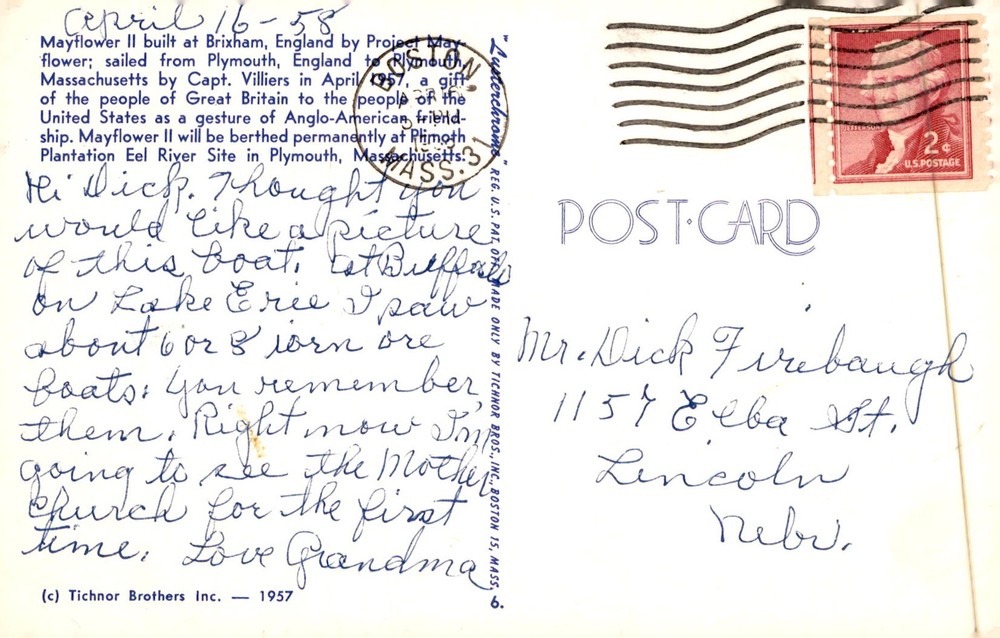 April 16-58
Mayflower II built at Brixham, England by Project May-
flower; sailed from Plymouth, England to Plymouth,
Massachusetts by Capt. Villiers in April 1957, a gift
of the people of Great Britain to the people of the
United States as a gesture of Anglo-American friend-
ship. Mayflower II will be berthed permanently at Plimoth
Plantation Eel River Site in Plymouth, Massachusetts.
Hi Dick. Thought you
would like a picture
of this boat. At Buffalo
on Lake Erie I saw
about 6 or 8 iorn ore
boats: you remember
them. Right now I'm
going to see the Mother
Church for the first
time. Love Grandma
(c) Tichnor Brothers Inc. — 1957
"Lusterchrome" REG. U.S. PAT. OFF. MADE ONLY BY TICHNOR BROS., INC., BOSTON 15, MASS.
6.
BOSTON
MASS. 31
JEFFERSON
2¢
U.S. POSTAGE
POST·CARD
Mr. Dick Firebaugh
1157 Elba St.
Lincoln
Nebr.